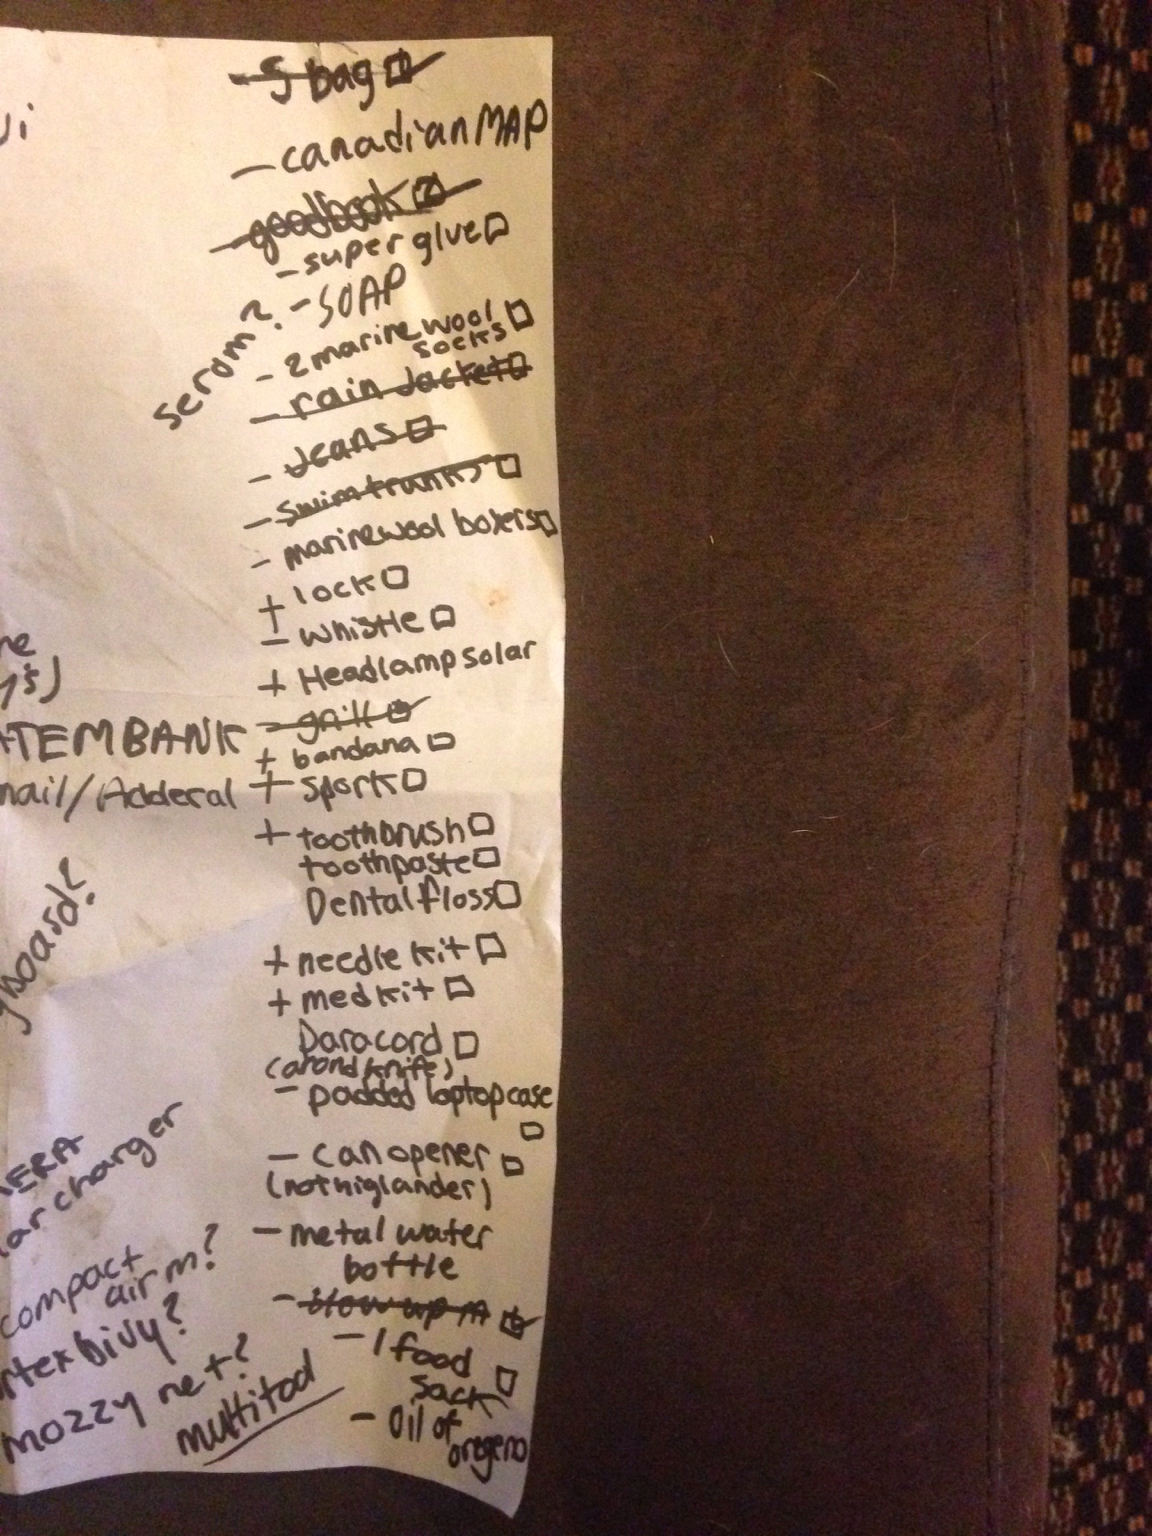 - 5 bag
- canadian MAP
- goodbook
- super glue
serum?
- SOAP
- 2 marine wool
socks
- rain Jacket
- Jeans
- swim trunks
- marine wool boxers
+ lock
- whistle
+ Headlamp solar
- grill
TEMBANK
+ bandana
mail/Adderal
+ spork
+ toothbrush
toothpaste
Dental floss
board?
+ needle kit
+ med kit
Paracord
(arond knife)
- padded laptop case
ERA
ar charger
- can opener
(not higlander)
- metal water
bottle
compact
air m?
- blow up m
rtex bivy?
- 1 food
sack
mozzy net?
multitool
- Oil of
oregeno